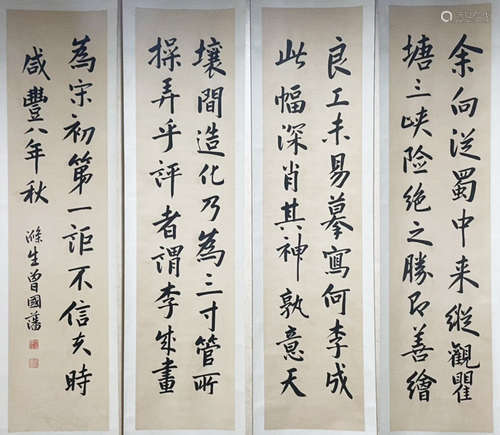 余向从蜀中来纵觀瞿
塘三峡险绝之勝即善繪
良工未易摹寫何李成
此幅深肖其神孰意天
壤間造化乃為三寸管所
操弄乎評者謂李成畫
為宋初第一詎不信夫時
咸豐八年秋
滌生曾國藩